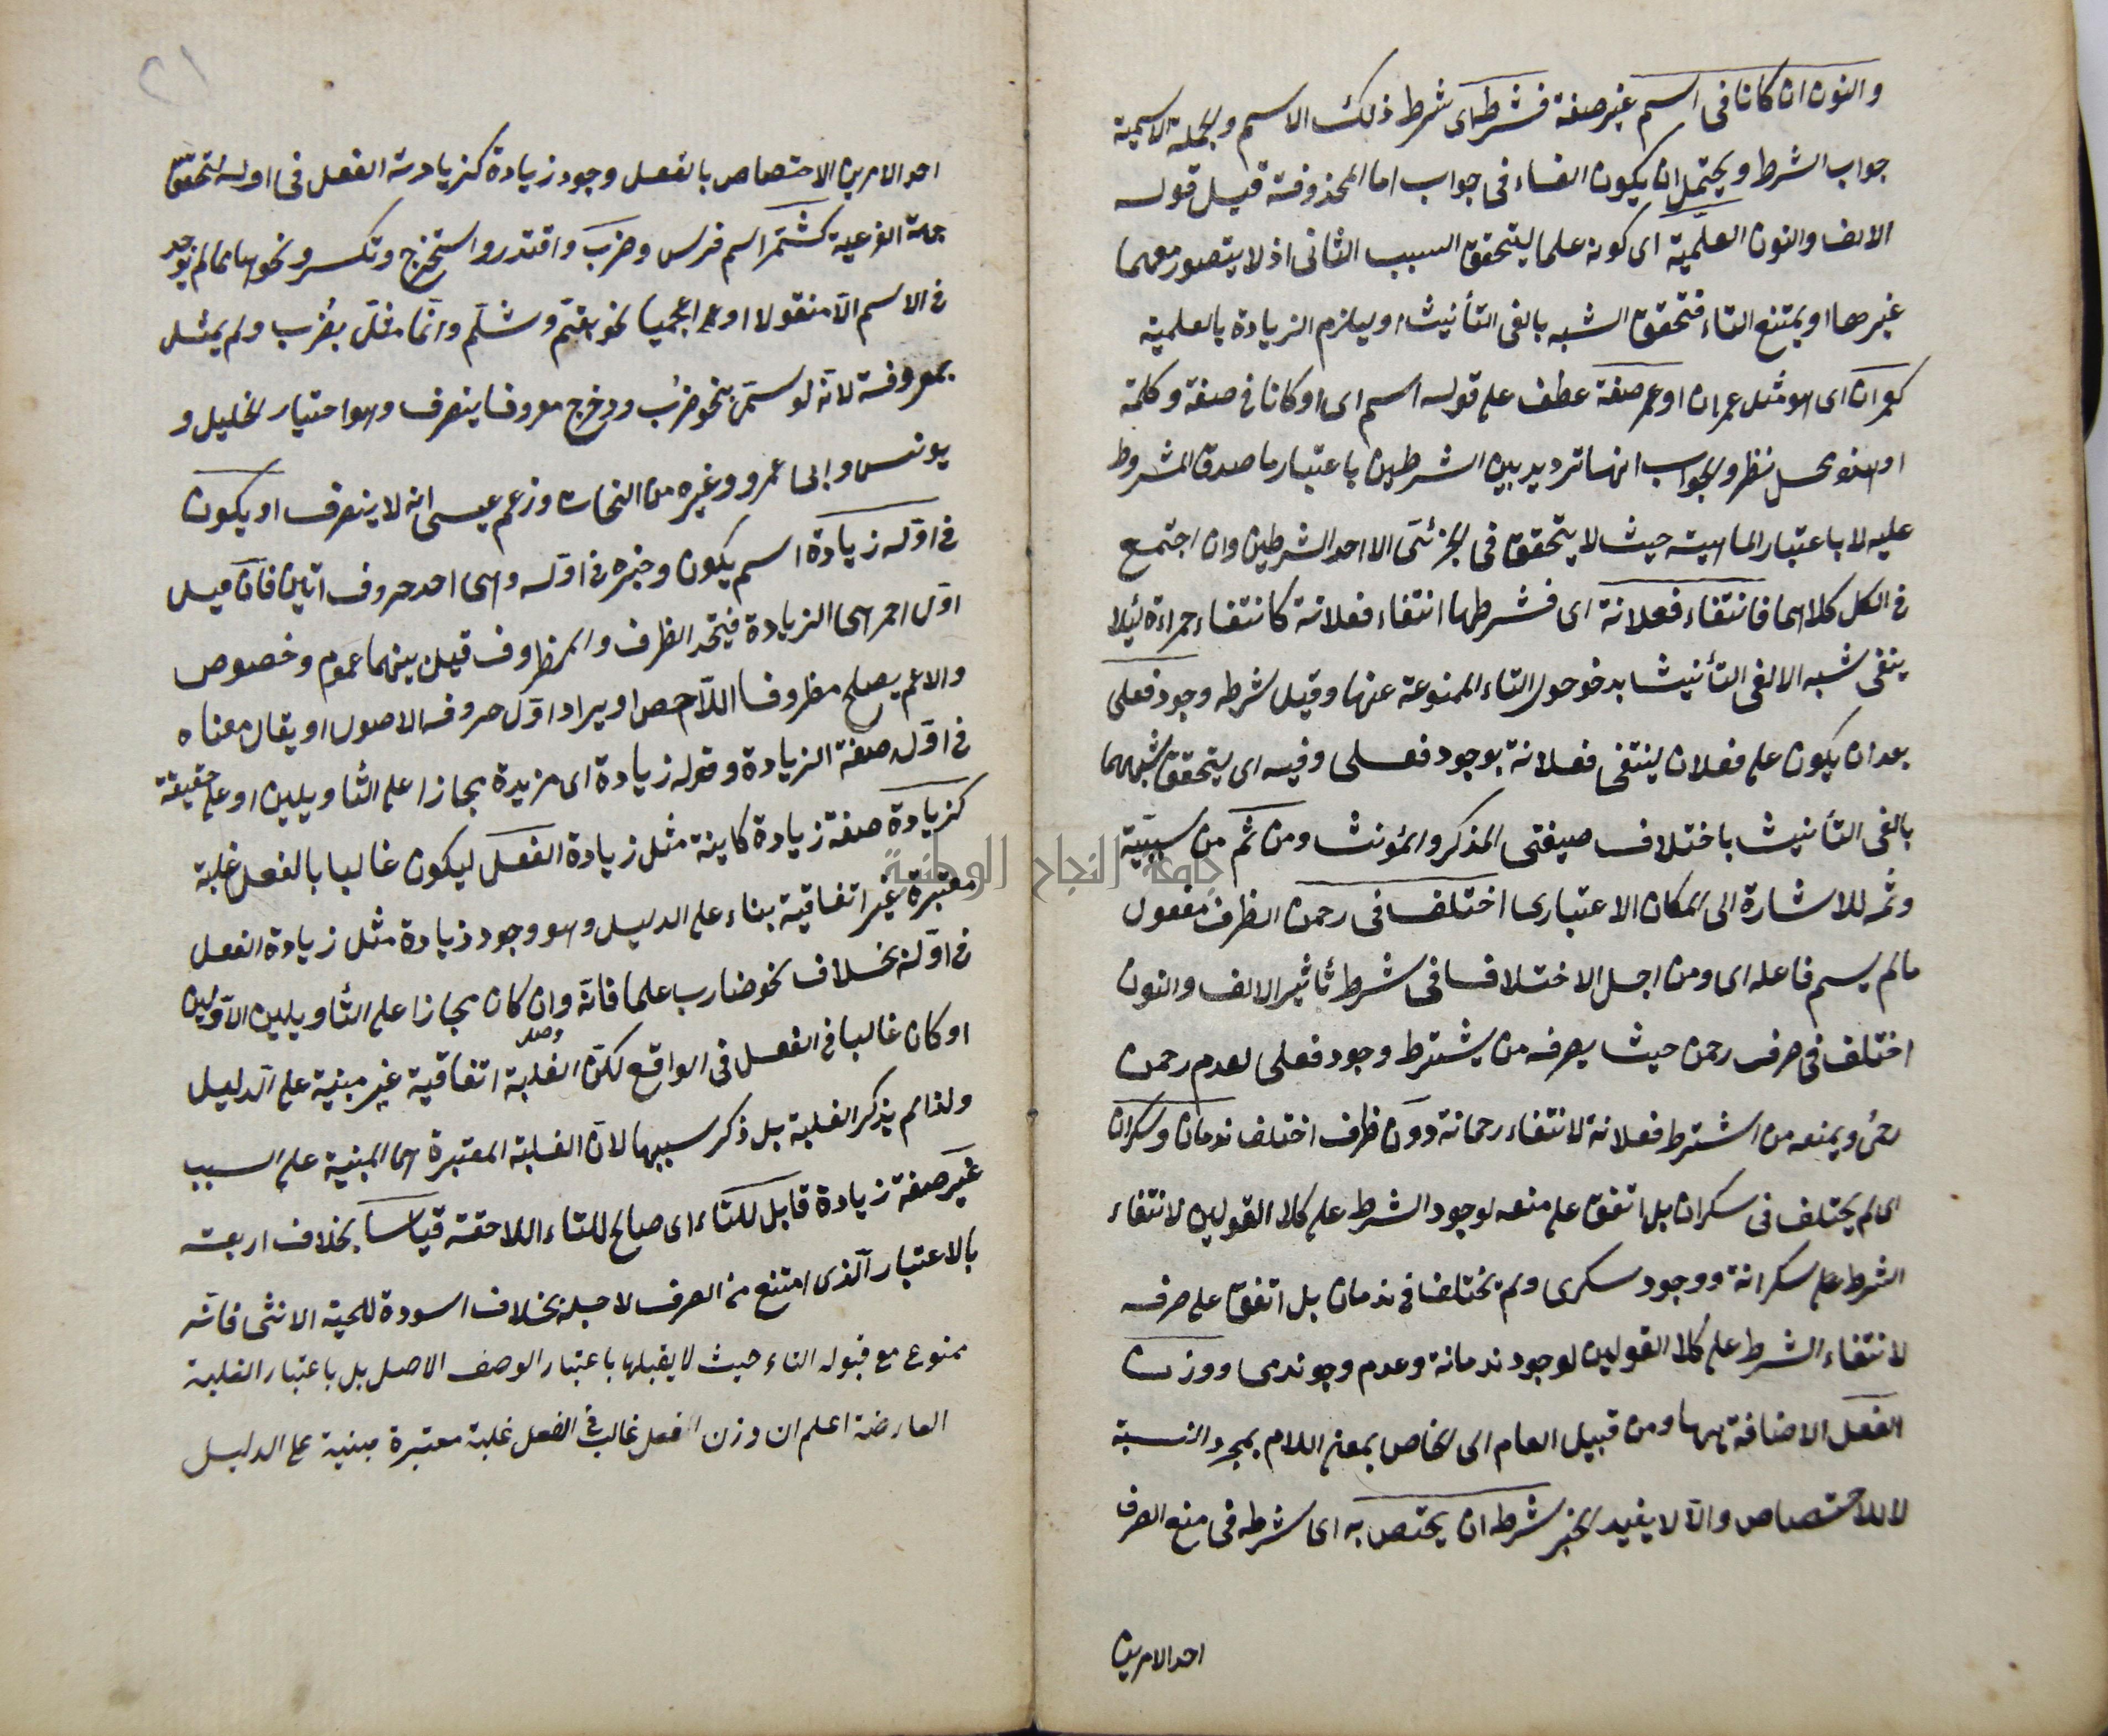 والنون ان كانا فى اسم غير صفة فشرطه اى شرط ذلك الاسم والجملة الاسمية
جواب الشرط ويحتمل ان يكون الفاء فى جواب اما المحذوفة قبل قوله
الالف والنون العلمية اى كونه علما ليتحقق السبب الثانى اذ لا يتصور معهما
غيرها او يمتنع التاء فتحقق الشبه بالفى التأنيث او ليلزم الزيادة بالعلمية
كعمران اى هو مثل عمران او صفة عطف على قوله اسم اى او كانا فى صفة وكلمة
او نظر والجواب انها ترديد بين الشرطين باعتبار ما صدق المشروط
عليه لا باعتبار الماهية حيث لا يتحقق فى الجزئى الا احد الشرطين وان اجتمع
فى الكل كلاهما فانتفاء فعلانة اى فشرطها انتفاء فعلانة كانتفاء حمراءة لئلا
ينفى شبه الالفى التأنيث بدخول التاء الممنوعة عنها وقيل شرطه وجود فعلى
بعد ان يكون على فعلان لينتفى فعلانة بوجود فعلى وفيه اى ليتحقق شبههما
بالفى التأنيث باختلاف صيغتى المذكر والمؤنث ومن ثم من سببية
وثمه للاشارة الى المكان الاعتبارى اختلف فى رحمن الظرف مفعول
مالم يسم فاعله اى ومن اجل الاختلاف فى شرط تاثير الالف والنون
اختلف فى صرف رحمن حيث يصرفه من يشترط وجود فعلى لعدم رحمن
رحمى ويمنعه من اشترط فعلانة لانتفاء رحمانة دون ظرف اختلف ندمان وسكران
اى لم يختلف فى سكران بل اتفق على منعه لوجود الشرط على كلا القولين لانتفاء
الشرط على سكرانة ووجود سكرى ولم يختلف فى ندمان بل اتفق على صرفه
لانتفاء الشرط على كلا القولين لوجود ندمانة وعدم وجو ندمى ووزن
الفعل الاضافة ههنا ومن قبيل العام الى الخاص بمعنى اللام بمجرد النسبة
لا للاختصاص والا لا يفيد الخبر شرطه ان يختص به اى شرطه فى منع الصرف
احد الامرين
٢١
احد الامرين الاختصاص بالفعل وجود زيادة كزيادته الفعل فى اوله لتحقق
جهة الفرعية كشمر اسم فرس وضرب واقتدر واستخرج وتكسر ونحوها مما لم يوجد
فى الاسم الا منقولا او اعجميا نحو بقم وشلم وانما مثل بضرب ولم يمثل
بمعروفة لانه لو سمى بنحو ضرب ودحرج معروفا ينصرف وهو اختيار الخليل و
يونس وابى عمرو وغيره من النحات وزعم عيسى انه لا ينصرف او يكون
فى اوله زيادة اسم يكون وخبره فى اوله وهى احد حروف اتين فان قيل
اول احمر هى الزيادة فيتحد الظرف والمظروف قيل بينهما عموم وخصوص
والاعم يصلح مظروفا اللاخص او يراد اول حروفه الاصول او يقال معناه
فى اول صفة الزيادة وقوله زيادة اى مزيدة مجازا على التاويلين او على حقيقة
كزيادة صفة زيادة كاينة مثل زيادة الفعل ليكون غالبا بالفعل غلبة
معتبرة غير اتفاقية بناء على الدليل وهو وجود زيادة مثل زيادة الفعل
فى اوله بخلاف نحو ضارب علما فانه وان كان مجازا على التاويلين الاولين
او كان غالبا فى الفعل فى الواقع لكن الغلبة اتفاقية غير مبنية على الدليل
ولذا لم يذكر الغلبة بل ذكر سببها لان الغلبة المعتبرة هى المبنية على السبب
غير صفة زيادة قابل للتاء اى صالح للتاء اللاحقة قياسا بخلاف اربعة
بالاعتبار الذى امتنع من الصرف لاجله بخلاف اسودة للحية الانثى فانه
ممنوع مع قبوله التاء حيث لا يقبلها باعتبار الوصف الاصل بل باعتبار الغلبة
العارضة اعلم ان وزن الفعل غالب فى الفعل غلبة معتبرة مبنية على الدليل
جامعة النجاح الوطنية